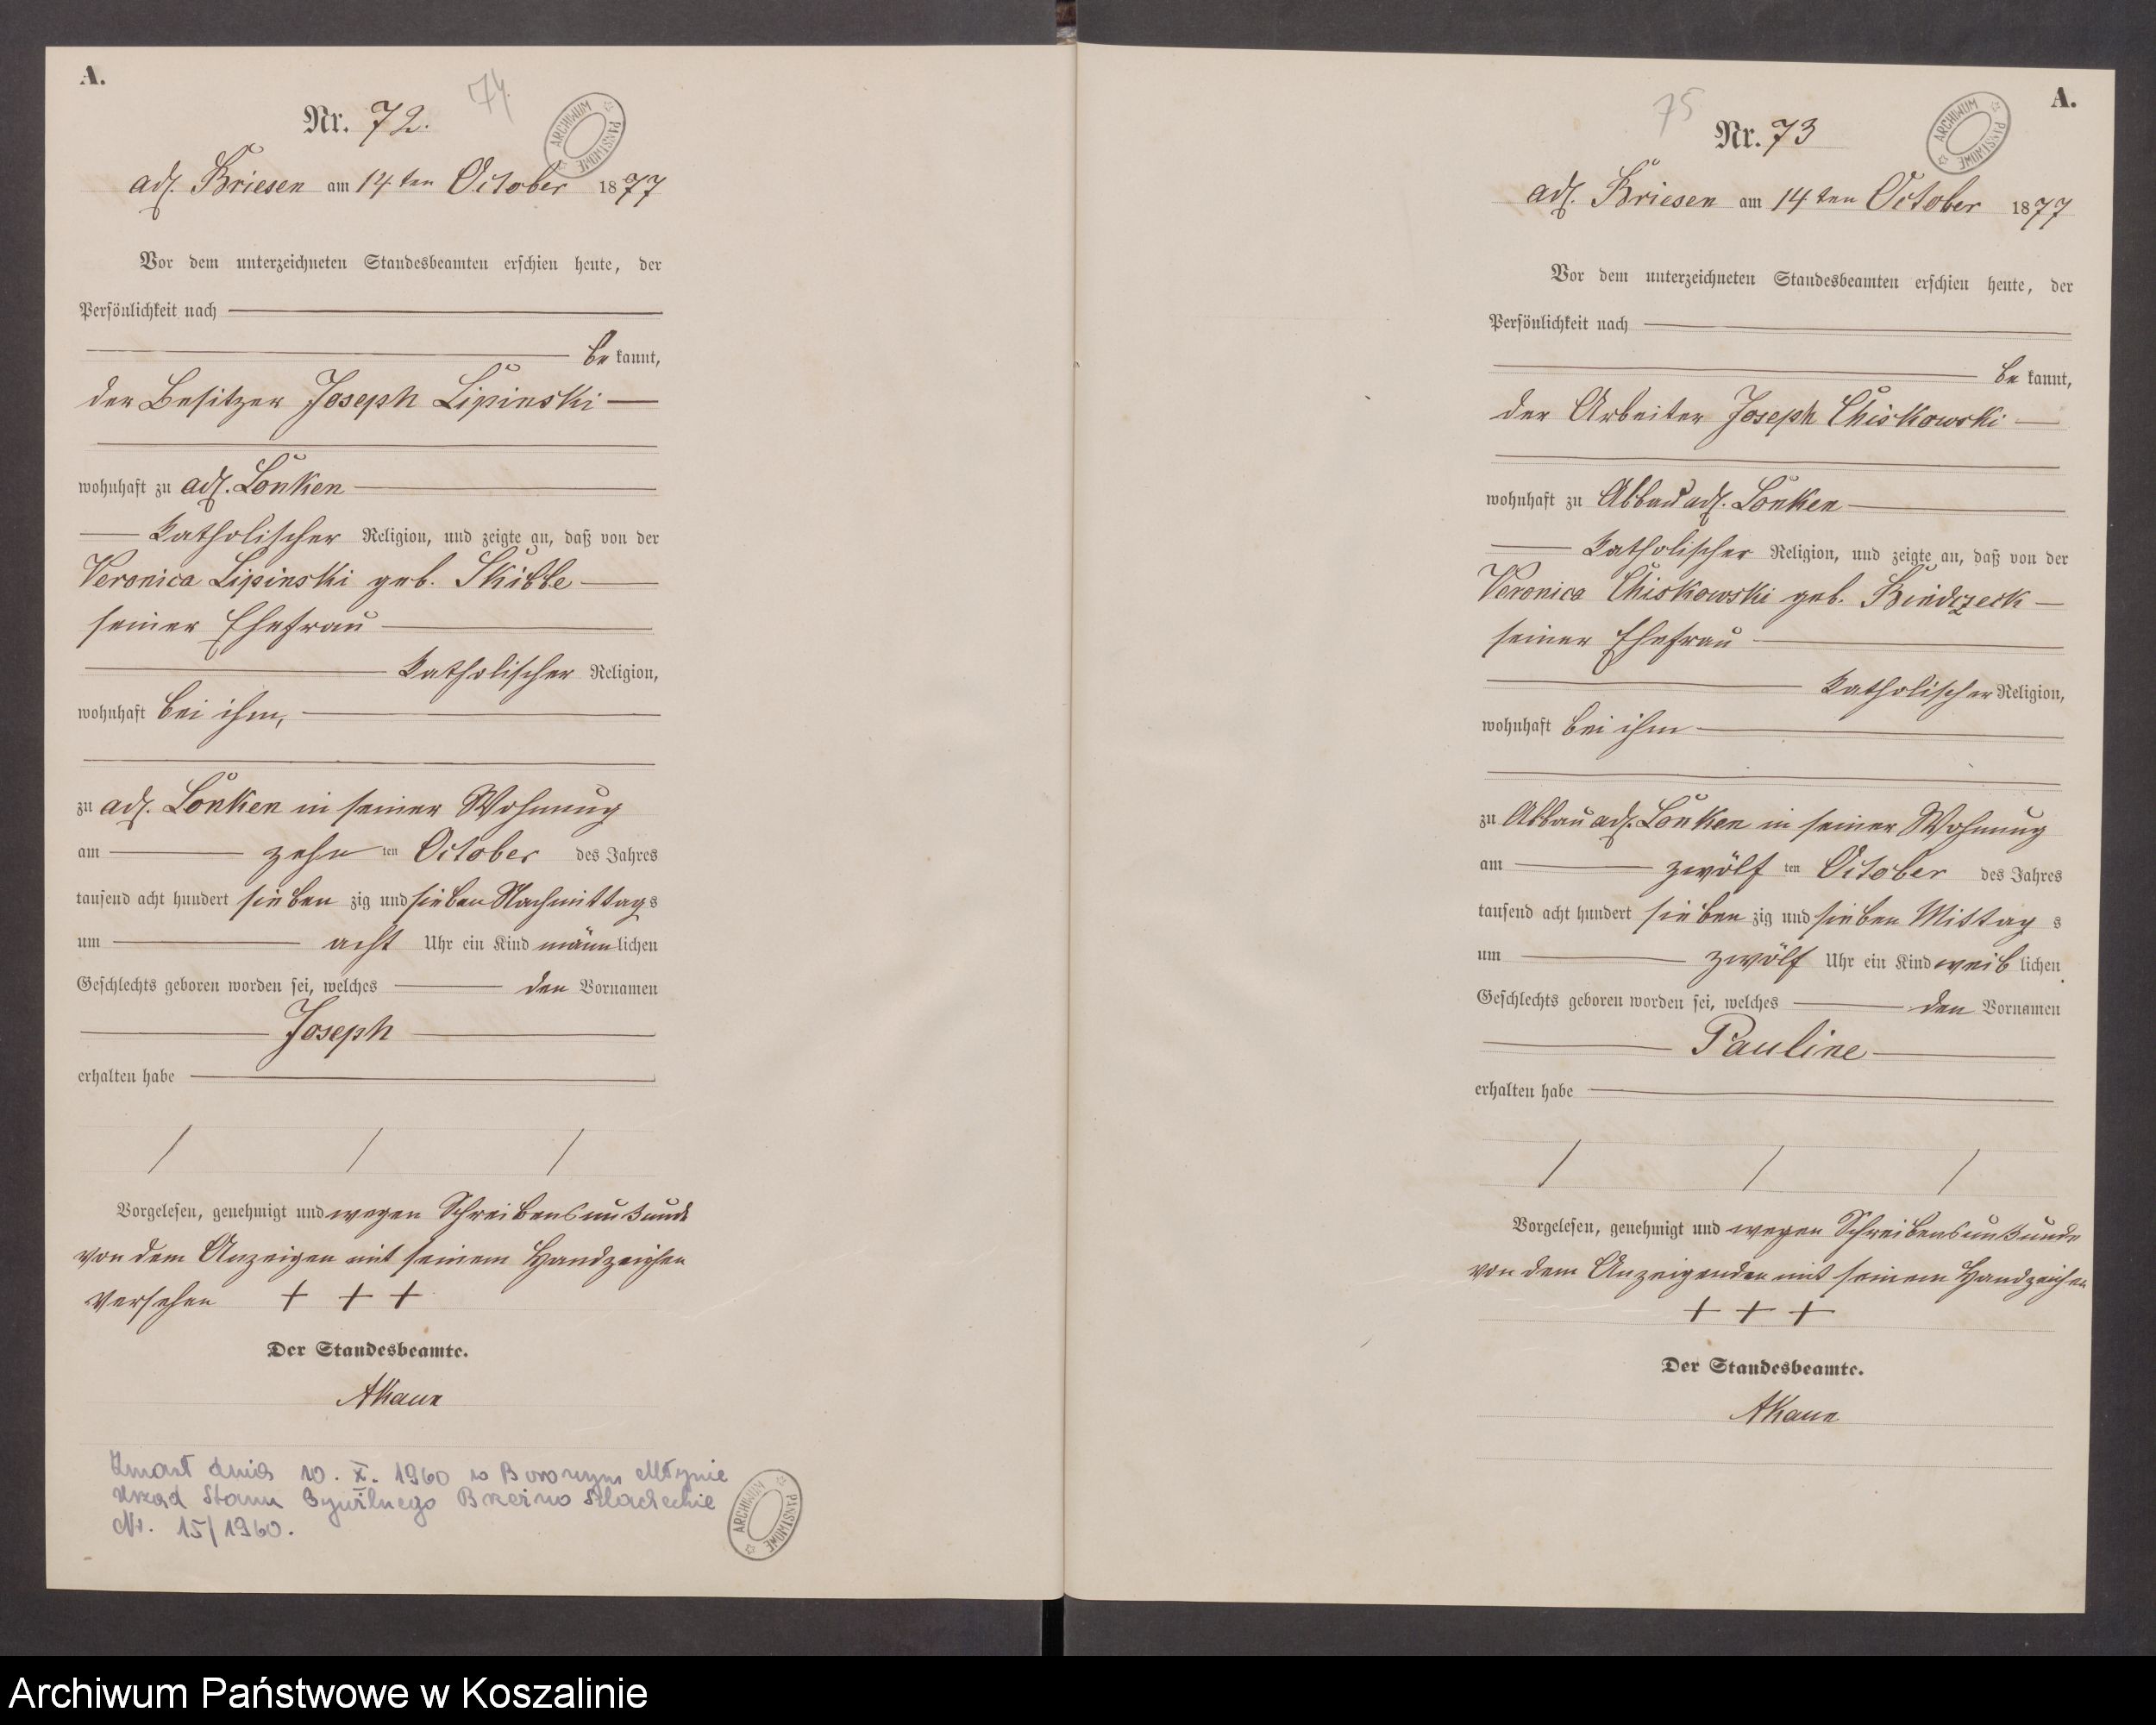 A.
74
Nr. 72.
ARCHIWUM PAŃSTWOWE
adl. Briesen am 14ten October 1877
Vor dem unterzeichneten Standesbeamten erschien heute, der
Persönlichkeit nach
bekannt,
der Besitzer Joseph Lipinski
wohnhaft zu adl. Lonken
katholischer Religion, und zeigte an, daß von der
Veronica Lipinski geb. Skibbe
seiner Ehefrau
katholischer Religion,
wohnhaft bei ihm,
zu adl. Lonken in seiner Wohnung
am zehn ten October des Jahres
tausend acht hundert siebenzig und sieben Nachmittags
um acht Uhr ein Kind männlichen
Geschlechts geboren worden sei, welches den Vornamen
Joseph
erhalten habe
Vorgelesen, genehmigt und wegen Schreibensunkunde
von dem Anzeigen mit seinem Handzeichen
versehen + + +
Der Standesbeamte.
AKaun
Zmarł dnia 10. X. 1960 w Borowym Młynie
Urząd Stanu Cywilnego Brzeźno Szlacheckie
Nr. 15/1960.
ARCHIWUM PAŃSTWOWE
A.
75
Nr. 73
ARCHIWUM PAŃSTWOWE
adl. Briesen am 14ten October 1877
Vor dem unterzeichneten Standesbeamten erschien heute, der
Persönlichkeit nach
bekannt,
der Arbeiter Joseph Chiskowski
wohnhaft zu Abbau adl. Lonken
katholischer Religion, und zeigte an, daß von der
Veronica Chiskowski geb. Bindczeck
seiner Ehefrau
katholischer Religion,
wohnhaft bei ihm
zu Abbau adl. Lonken in seiner Wohnung
am zwölf ten October des Jahres
tausend acht hundert siebenzig und sieben Mittags
um zwölf Uhr ein Kind weiblichen
Geschlechts geboren worden sei, welches den Vornamen
Pauline
erhalten habe
Vorgelesen, genehmigt und wegen Schreibensunkunde
von dem Anzeigenden mit seinem Handzeichen
+ + +
Der Standesbeamte.
AKaun
Archiwum Państwowe w Koszalinie